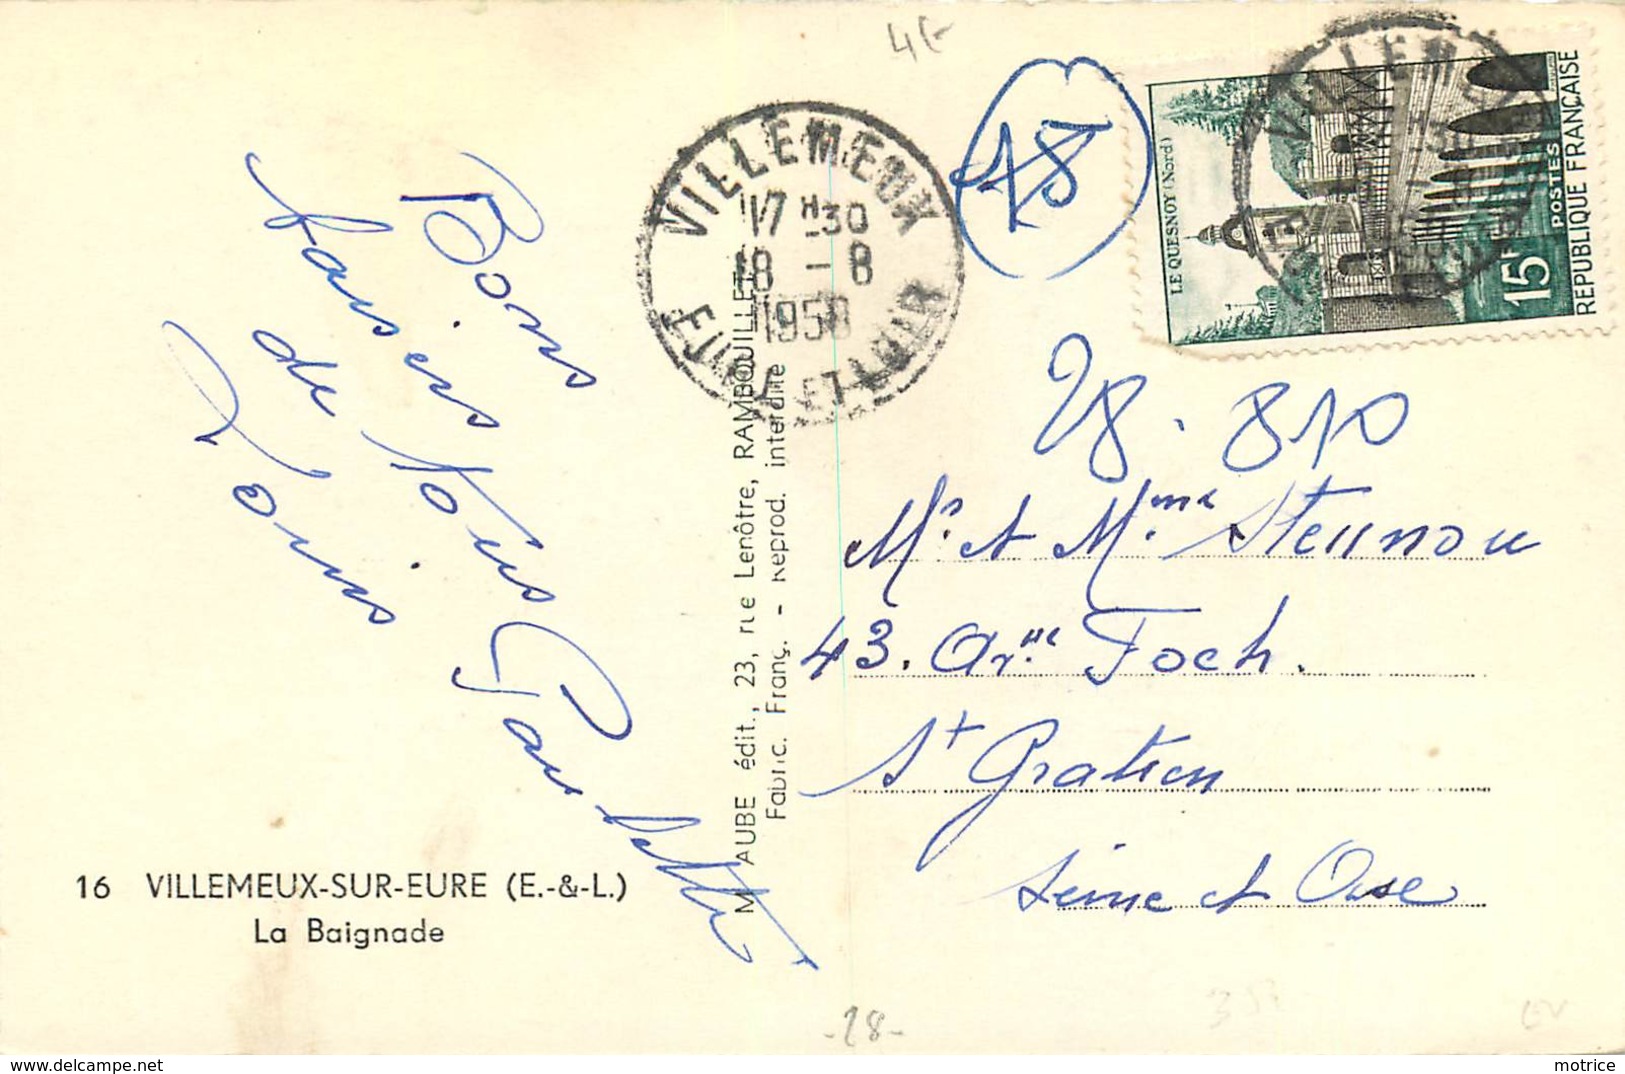 4F
28
VILLEMEUX
17 H 30
18 - 8
1958
EURE ET LOIR
VILLEM
LE QUESNOY (Nord)
15F
POSTES
REPUBLIQUE FRANÇAISE
28.810
Bons
baisers
de tous
Louis
Paulette
Mr et Mme
43. Av.ue Foch.
St Gratien
Seine et Oise
M AUBE édit., 23, rue Lenôtre, RAMBOUILLET
Fabric. Franç. - Reprod. interdite
16 VILLEMEUX-SUR-EURE (E.-&-L.)
La Baignade
-28-
motrice